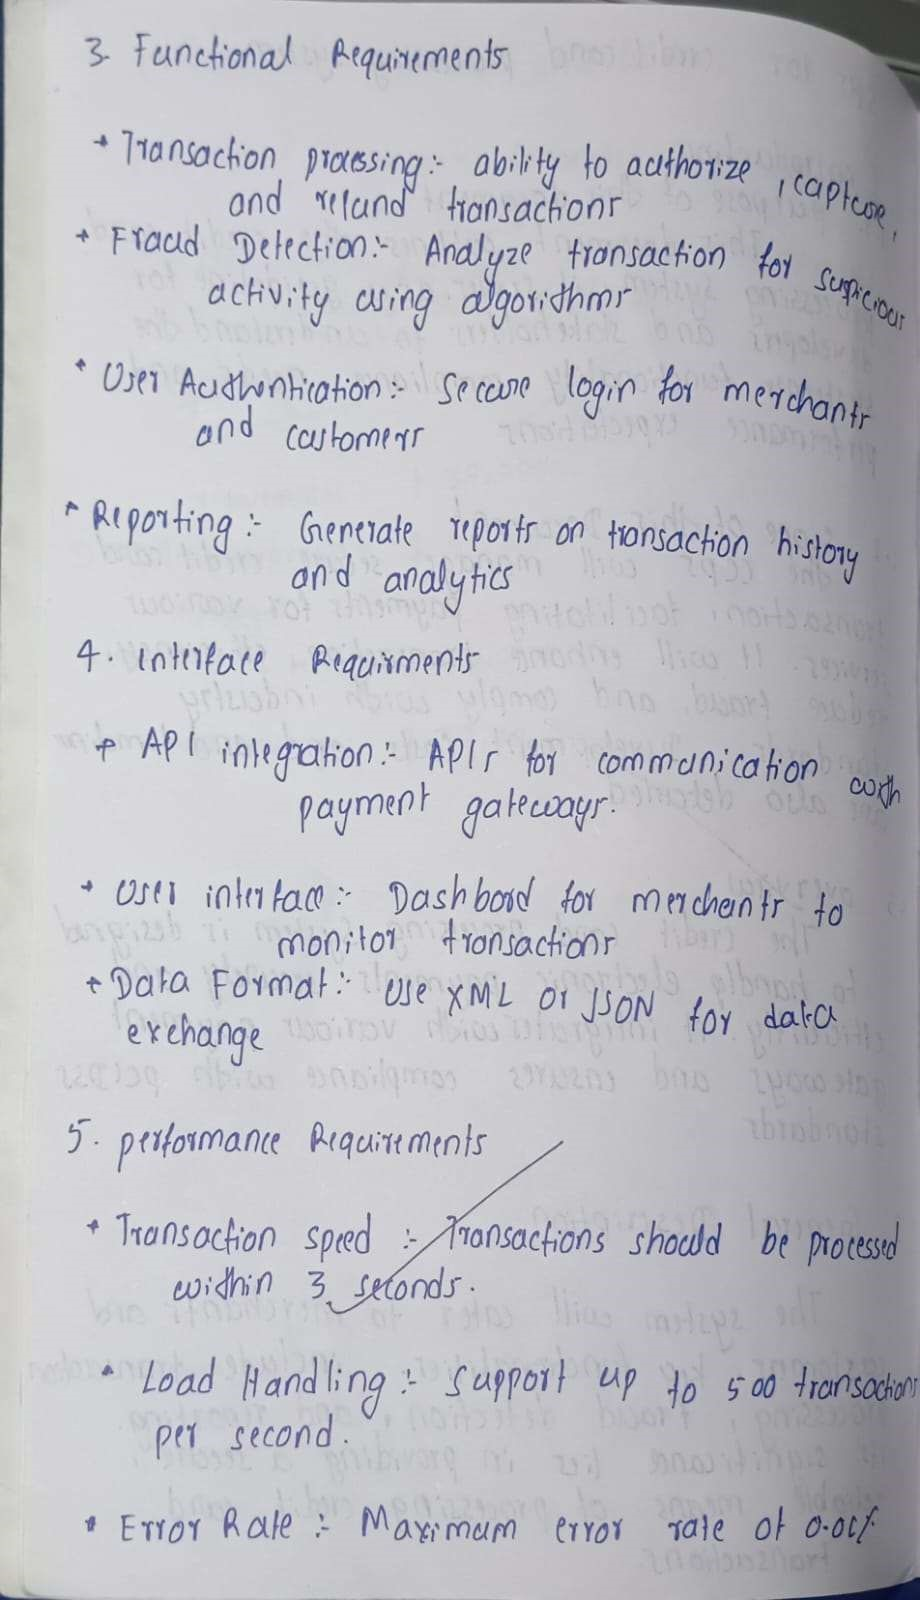 3. Functional Requirements
* Transaction processing:- ability to authorize, capture,
and refund transactions
* Fraud Detection:- Analyze transaction for suspicious
activity using algorithms
* User Authentication:- Secure login for merchants
and customers
* Reporting:- Generate reports on transaction history
and analytics
4. Interface Requirments
* API integration:- APIs for communication with
payment gateways.
* User interface:- Dashbord for merchants to
monitor transactions
* Data Format:- Use XML or JSON for data
exchange
5. performance Requirements
* Transaction speed:- Transactions should be processed
within 3 seconds.
* Load Handling:- Support up to 500 transactions
per second.
* Error Rate:- Maximum error rate of 0.01%